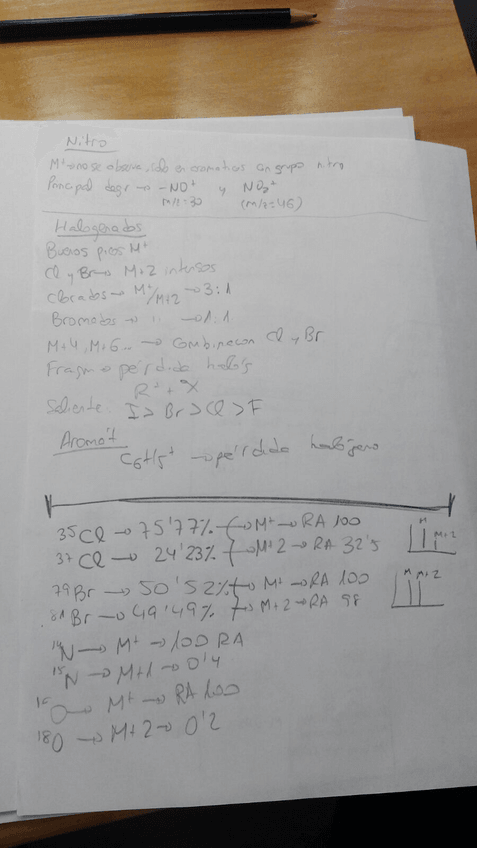 Nitro
M⁺ → no se observa, sólo en aromáticos con grupo nitro
Principal degr → -NO⁺ y NO₂⁺
m/z=30 (m/z=46)
Halogenados
Buenos picos M⁺
Cl y Br → M+2 intensos
Clorados → M⁺/M+2 → 3:1
Bromados → '' → 1:1
M+4, M+6... → Combinación Cl y Br
Fragm → pérdida halóg
R⁺ + X
Saliente: I > Br > Cl > F
Aromát
C₆H₅⁺ → pérdida halógeno
³⁵Cl → 75'77% → M⁺ → RA 100
³⁷Cl → 24'23% → M+2 → RA 32'5
M M+2
⁷⁹Br → 50'52% → M⁺ → RA 100
⁸¹Br → 49'49% → M+2 → RA 98
M M+2
¹⁴N → M⁺ → 100 RA
¹⁵N → M+1 → 0'4
O → M⁺ → RA 100
¹⁸O → M+2 → 0'2